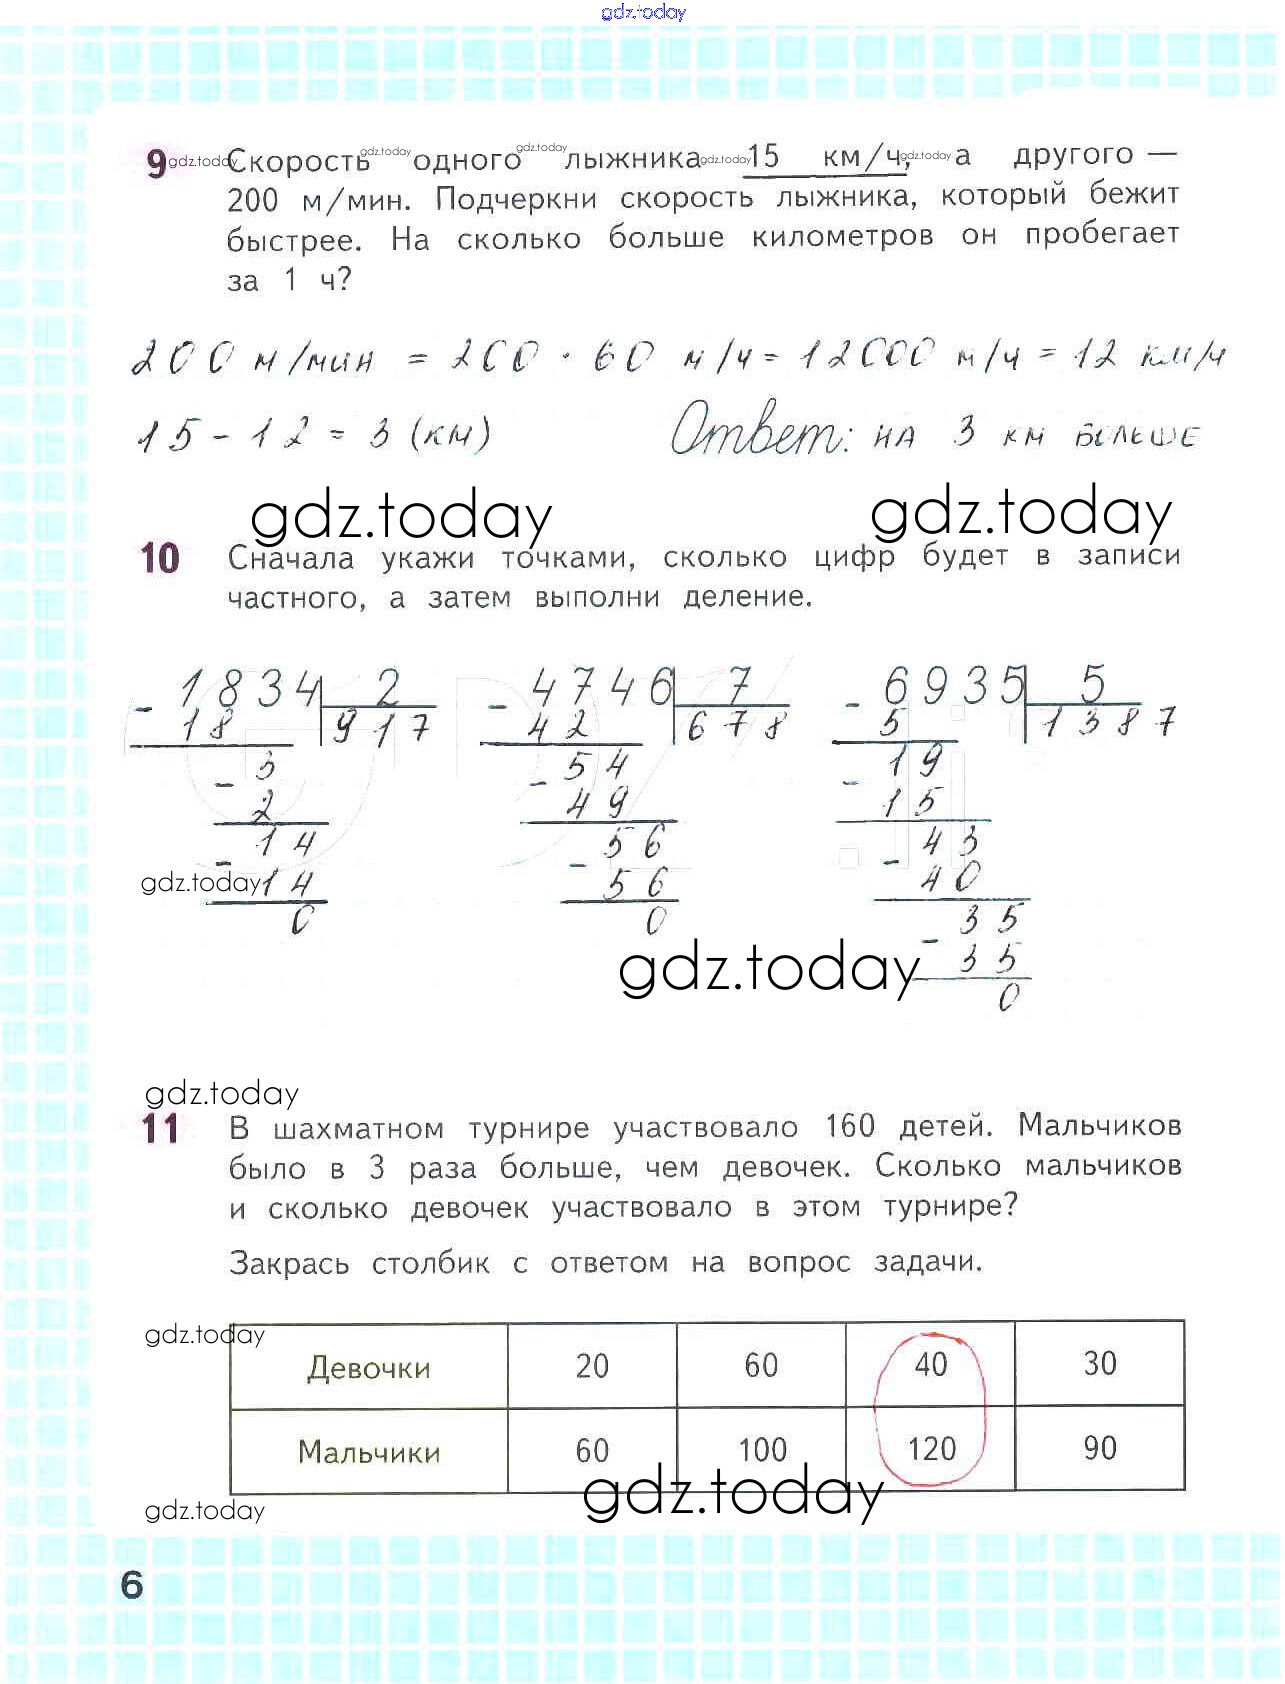 gdz.today
9 gdz.today Скорость gdz.today одного gdz.today лыжника gdz.today 15 км/ч, gdz.today а другого —
200 м/мин. Подчеркни скорость лыжника, который бежит
быстрее. На сколько больше километров он пробегает
за 1 ч?
200 м/мин = 200 · 60 м/ч = 12000 м/ч = 12 км/ч
15 - 12 = 3 (км) Ответ: на 3 км больше
gdz.today gdz.today
10 Сначала укажи точками, сколько цифр будет в записи
частного, а затем выполни деление.
- 1834 2 - 4746 7 - 6935 5
18 917 42 678 5 1387
- 3 - 54 - 19
2 49 15
- 14 - 56 - 43
gdz.today 14 56 40
0 0 - 35
gdz.today 35
0
gdz.today
11 В шахматном турнире участвовало 160 детей. Мальчиков
было в 3 раза больше, чем девочек. Сколько мальчиков
и сколько девочек участвовало в этом турнире?
Закрась столбик с ответом на вопрос задачи.
gdz.today
Девочки 20 60 40 30
Мальчики 60 100 120 90
gdz.today
gdz.today
6